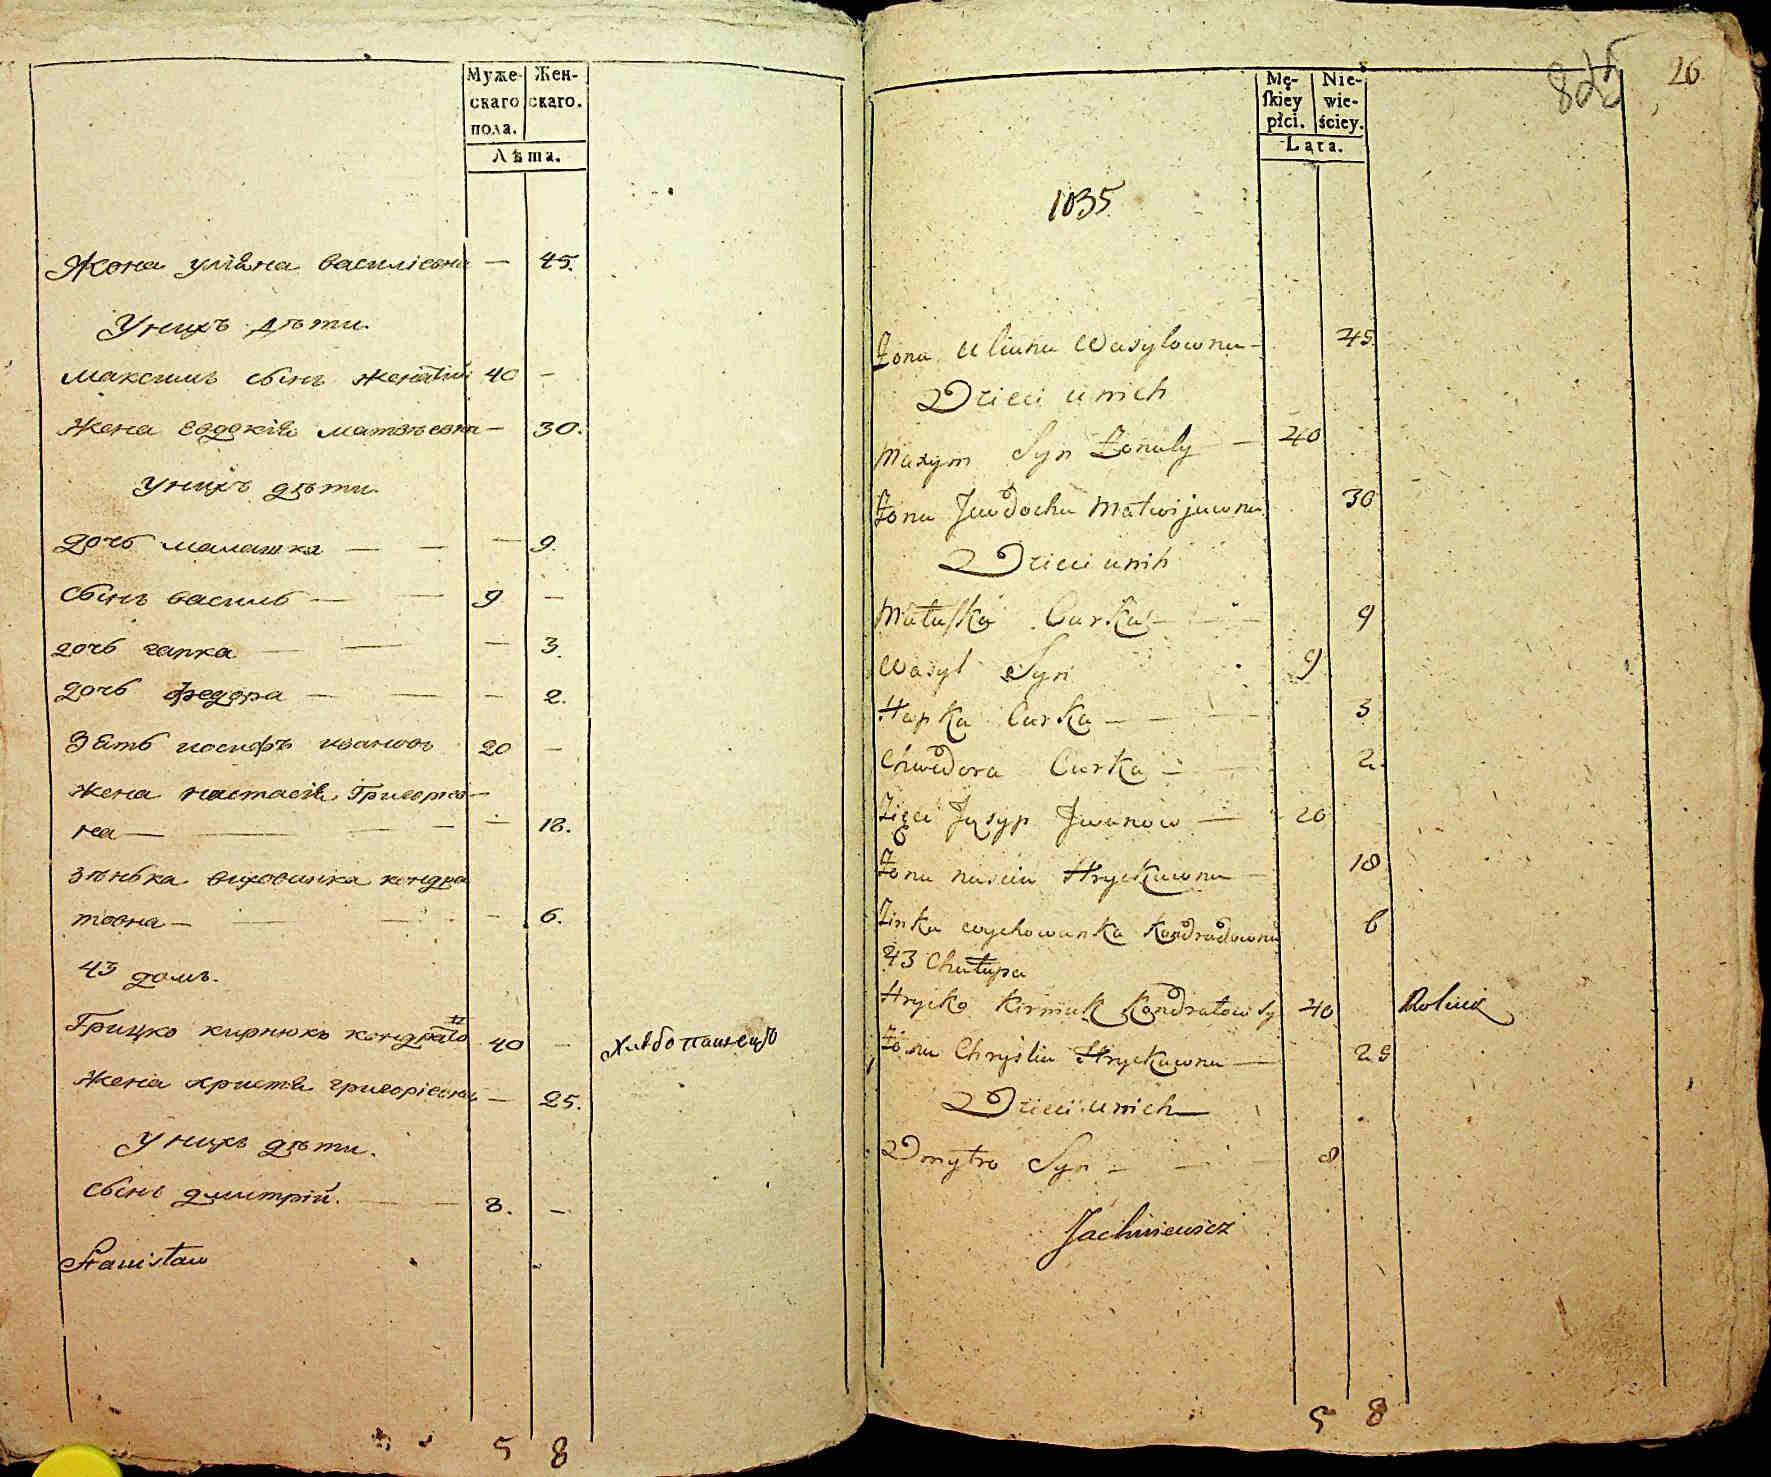 Муже- Жен-
скаго скаго.
пола.
Лѣта.
Жона улiяна василiевна — 45.
Унихъ дѣти.
максимъ сынъ женатый 40 —
Жена евдокiя матвѣевна — 30.
унихъ дѣти.
дочь малашка — — — 9.
сынъ василь — — 9 —
дочь гапка — — — 3.
дочь федора — — — 2.
Зять иосифъ ивановъ 20 —
жена настасiя Григорiев-
на — — — — — 18.
зѣнька виховинка кондра
товна — — — — 6.
43 домъ.
Грицко кирнюкъ кондрато 40 — хлѣбопашецъ
жена христя григорiевна — 25.
У нихъ дѣти.
сынъ дмитрiй. — — 8. —
Stanisław
5 8
825 26
Mę- Nie-
ſkiey wie-
płci. ściey.
Lata.
1035
Żona Uliana Wasylowna — 45.
Dzieci u nich
Maxym Syn Żonaty — 40
Żona Jewdocha Matwijowna 30
Dzieci u nih
Małaſka Curka — — — 9
Wasyl Syn 9
Hapka Curka — — — 3
Chwedora Curka — — 2.
Zięć Jusyp Jwanow — 20
Żona nascia Hryckowna — 18
Zinka wychowanka Kondradowna 6
43 Chałupa
Hrycko Kirniuk Kondratow Sy 40 Rolnik
Żona Chrystia Hryckowna — 25
Dzieci u nich
Dmytro Syn — — — 8
Jachniewicz
5 8